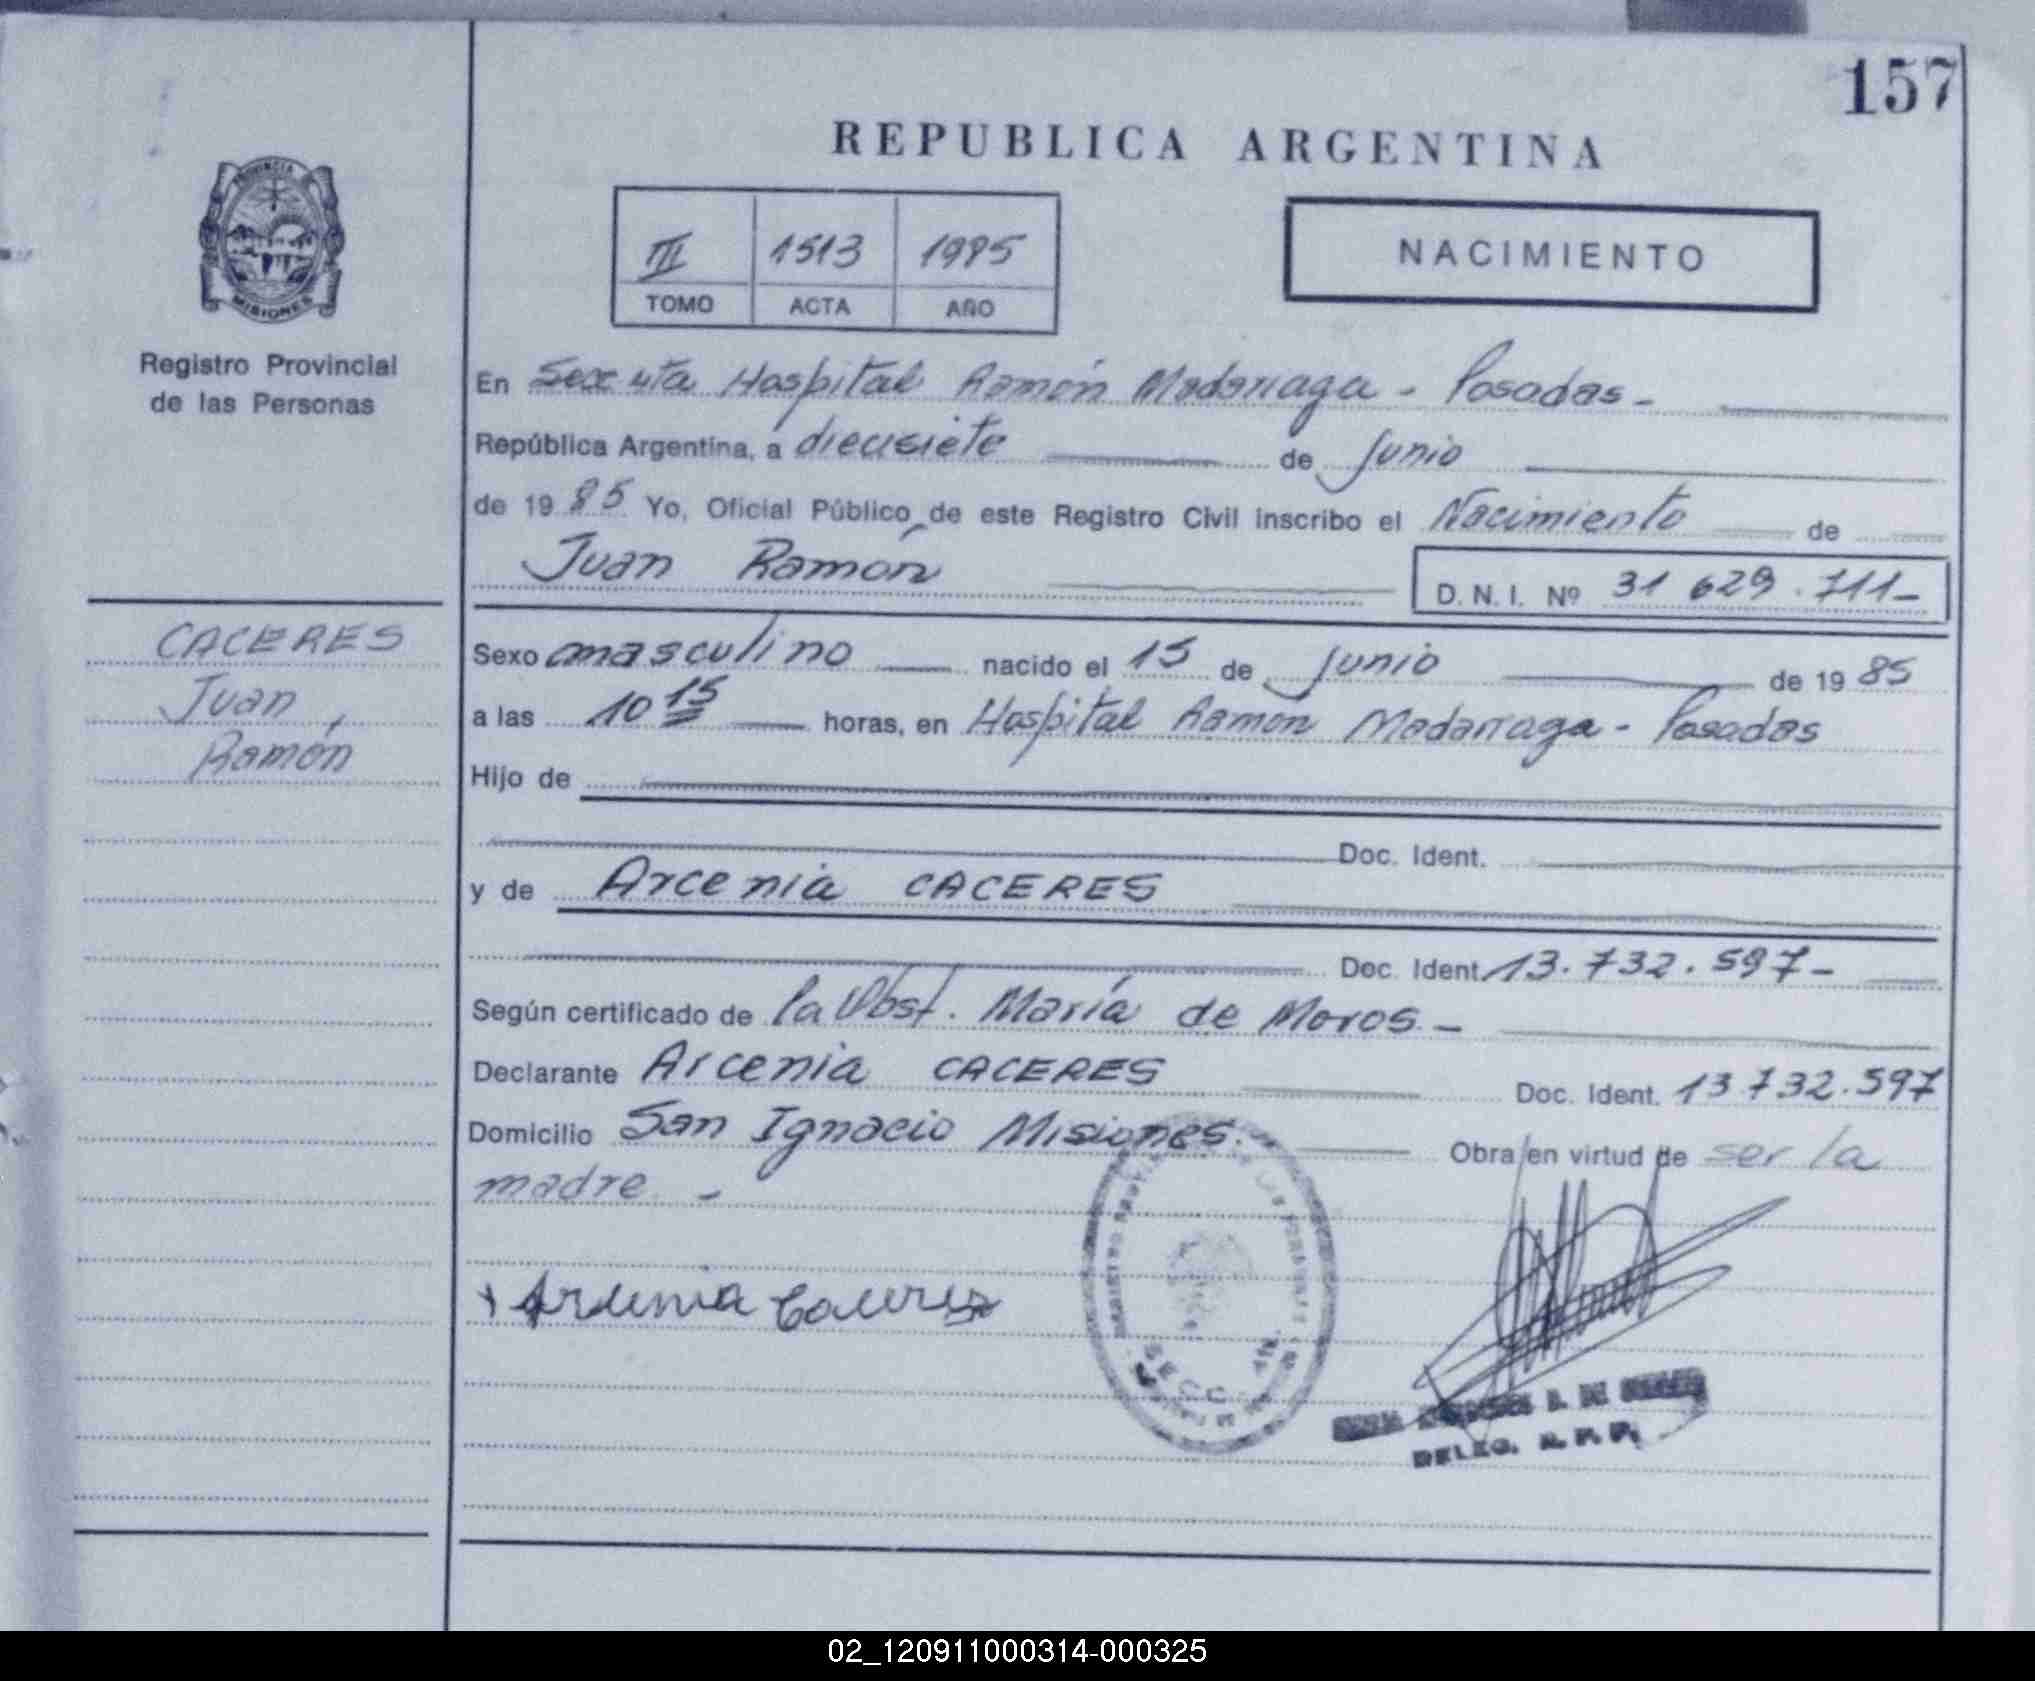 157
REPUBLICA ARGENTINA
PROVINCIA
MISIONES
III 1513 1985
TOMO ACTA AÑO
NACIMIENTO
Registro Provincial
de las Personas
En Hospital Ramón Madariaga - Posadas -
República Argentina, a diecisiete de Junio
de 1985 Yo, Oficial Público de este Registro Civil inscribo el Nacimiento de
Juan Ramón D.N.I. Nº 31 629.711-
CACERES
Juan
Ramón
Sexo masculino nacido el 15 de Junio de 1985
a las 10 15 horas, en Hospital Ramon Madariaga - Posadas
Hijo de
Doc. Ident.
y de Arcenia CACERES
Doc. Ident. 13.732.597-
Según certificado de la Obst. María de Moros -
Declarante Arcenia CACERES Doc. Ident. 13 732.597
Domicilio San Ignacio Misiones. Obra en virtud de ser la
madre -
Arcenia Caceres
SECC.
DELEG. R. P. P.
02_120911000314-000325